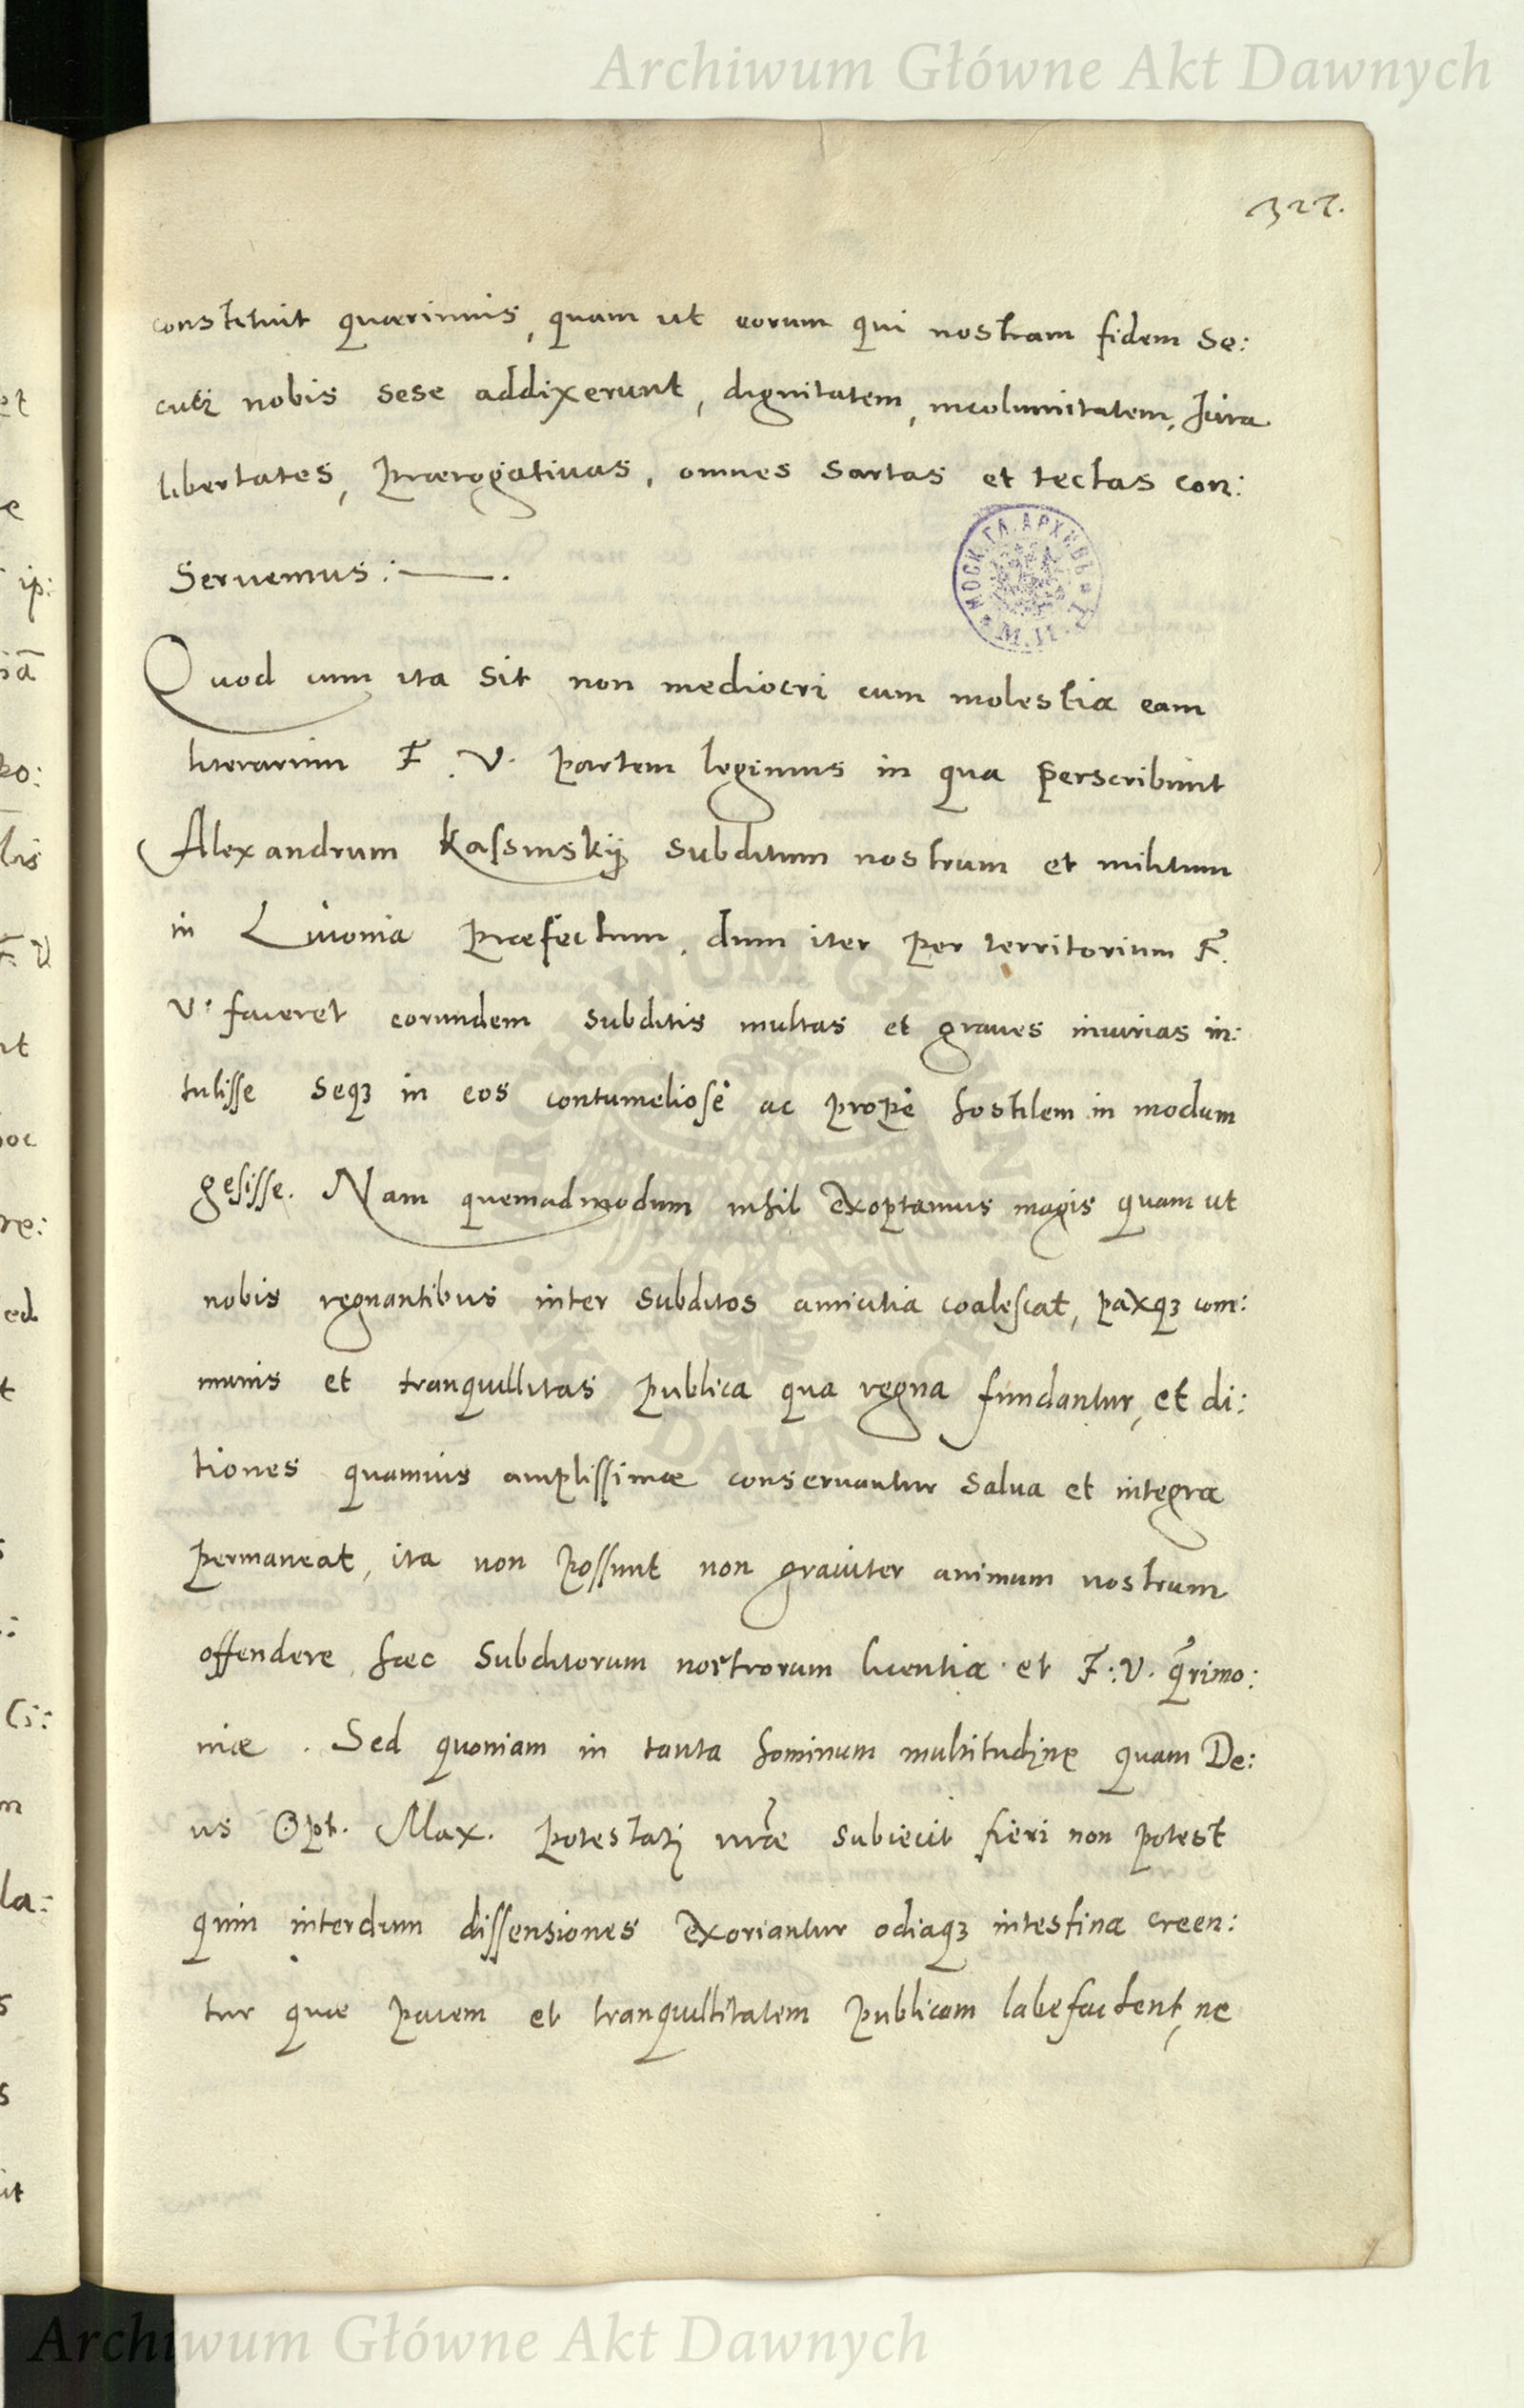 Archiwum Główne Akt Dawnych
327.
constituit quærimus, quam ut eorum qui nostram fidem se:
cuti nobis sese addixerunt, dignitatem, incolumitatem, Jura
libertates, prærogatiuas, omnes sartas et tectas con:
seruemus:
Quod cum ita sit non mediocri cum molestia eam
literarum F. V. partem legimus in qua perscribunt
Alexandrum Kassinskÿ subditum nostrum et militum
in Liuonia præfectum, dum iter per territorium F.
V. faceret eorundem subditis multas et graues iniurias in:
tulisse seqꝫ in eos contumeliosè ac propè hostilem in modum
gesisse. Nam quemadmodum nihil exoptamus magis quam ut
nobis regnantibus inter subditos amicitia coalescat, paxqꝫ com:
munis et tranquillitas publica qua regna fundantur, et di:
tiones quamuis amplissimæ conseruantur salua et integra
permaneat, ita non possunt non grauiter animum nostrum
offendere hæc subditorum nostrorum licentia et F: V. q̃rimo:
niæ. Sed quoniam in tanta hominum multitudine quam De:
us Opt. Max. potestati nr̃æ subiecit fieri non potest
quin interdum dissensiones exoriantur odiaqꝫ intestina creen:
tur quæ pacem et tranquillitatem publicam labefactent, ne
Archiwum Główne Akt Dawnych